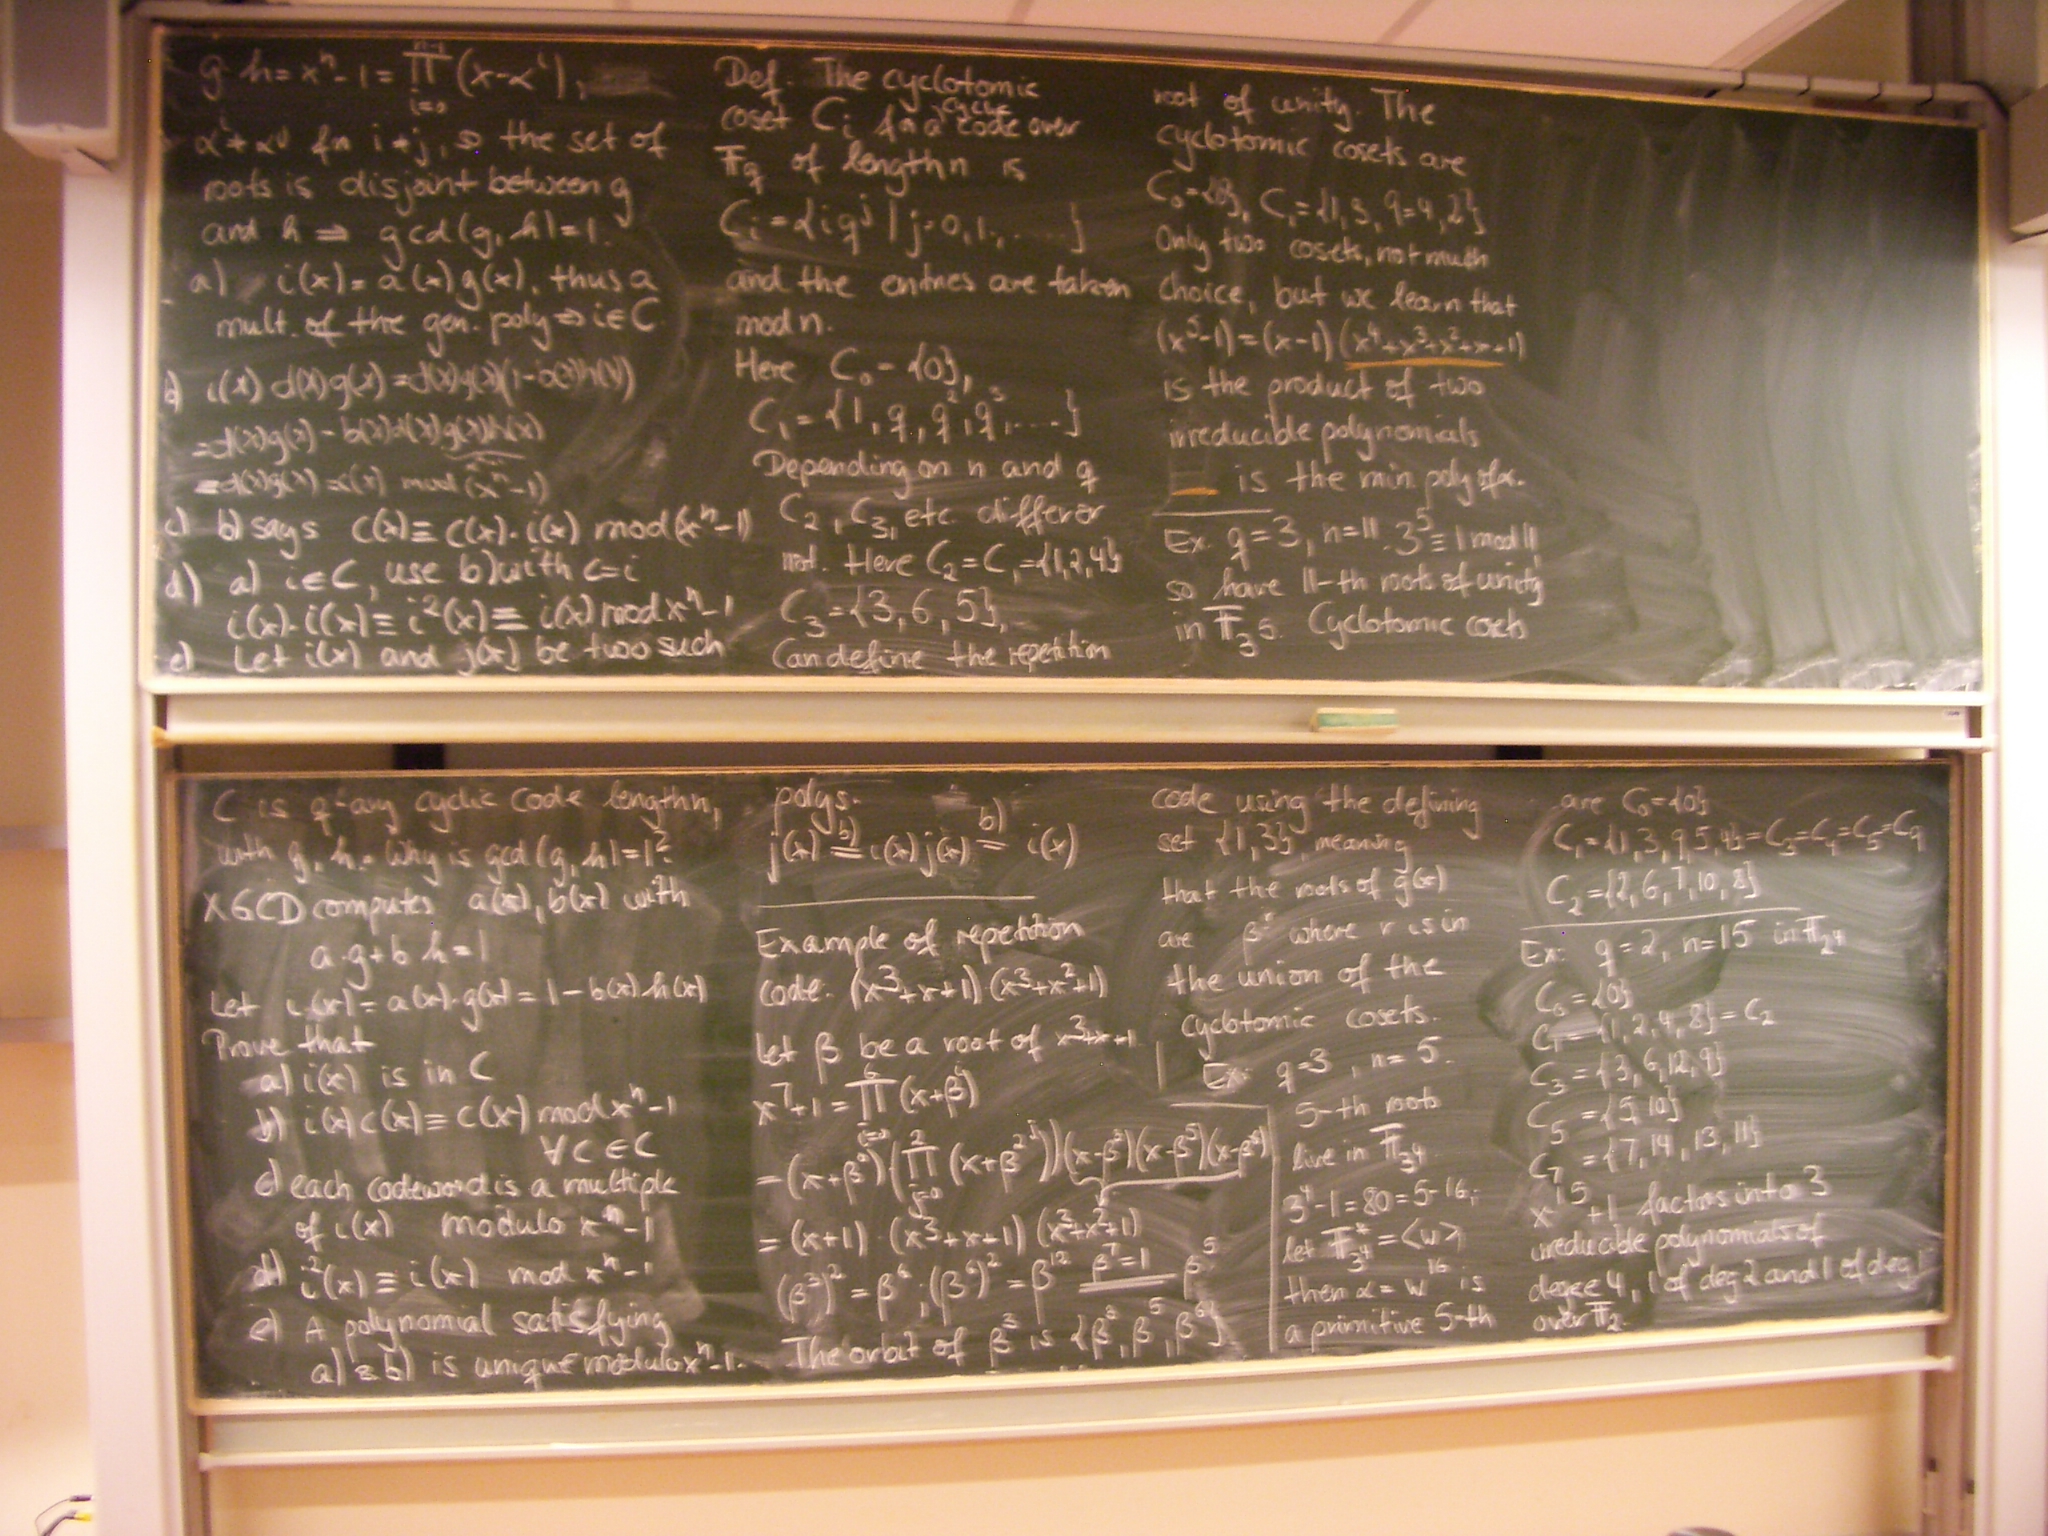 g·h = xⁿ-1 = ∏_{i=0}^{n-1} (x-αⁱ),
αⁱ ≠ αʲ for i≠j, so the set of
roots is disjoint between g
and h ⇒ gcd(g,h)=1.
a) i(x) = a(x)g(x), thus a
mult. of the gen. poly ⇒ i∈C
b) i(x) d(x)g(x) = d(x)g(x)(1-b(x)h(x))
= d(x)g(x) - b(x)d(x)g(x)h(x)
= d(x)g(x) = c(x) mod (xⁿ-1)
c) b) says c(x) ≡ c(x)·i(x) mod (xⁿ-1)
d) a) i∈C, use b) with c=i
i(x)·i(x) ≡ i²(x) ≡ i(x) mod xⁿ-1
e) Let i(x) and j(x) be two such
Def. The cyclotomic
coset Cᵢ for a cyclic code over
𝔽_q of length n is
Cᵢ = {iqʲ | j=0,1,.....}
and the entries are taken
mod n.
Here C₀ = {0},
C₁ = {1, q, q², q³, ....}
Depending on n and q
C₂, C₃, etc. differ or
not. Here C₂ = C₁ = {1,2,4}
C₃ = {3,6,5},
Can define the repetition
root of unity. The
cyclotomic cosets are
C₀={0}, C₁={1,3,9=4,2}
Only two cosets, not much
choice, but we learn that
(x⁵-1)=(x-1)(x⁴+x³+x²+x+1)
is the product of two
irreducible polynomials
__ is the min poly of α.
Ex. q=3, n=11. 3⁵≡1 mod 11,
so have 11-th roots of unity
in 𝔽_{3^5}. Cyclotomic cosets
C is q-ary cyclic code length n,
with g, h. Why is gcd(g,h)=1?
XGCD computes a(x), b(x) with
a·g+b·h=1
Let i(x) = a(x)·g(x) = 1-b(x)·h(x)
Prove that
a) i(x) is in C
b) i(x)c(x) ≡ c(x) mod xⁿ-1
∀c∈C
c) each codeword is a multiple
of i(x) modulo xⁿ-1
d) i²(x) ≡ i(x) mod xⁿ-1
e) A polynomial satisfying
a) & b) is unique modulo xⁿ-1.
polys.
j(x) =^{b)} i(x)j(x) =^{b)} i(x)
Example of repetition
code. (x³+x+1)(x³+x²+1)
Let β be a root of x³+x+1
x⁷+1 = ∏_{i=0}^{6} (x+βⁱ)
= (x+β⁰)(∏_{j=0}^{2} (x+β^{2^j}))(x-β³)(x-β⁵)(x-β⁶)
= (x+1)·(x³+x+1)(x³+x²+1)
(β³)² = β⁶, (β⁶)² = β¹² β⁷=1 β⁵
The orbit of β³ is {β³,β⁵,β⁶}
code using the defining
set {1,3}, meaning
that the roots of g(x)
are βʳ where r is in
the union of the
cyclotomic cosets.
Ex: q=3, n=5.
5-th roots
live in 𝔽_{3^4}
3⁴-1=80=5·16,
let 𝔽*_{3^4} = <w>
then α = w¹⁶ is
a primitive 5-th
are C₀={0}
C₁={1,3,9,5,4}=C₃=C₄=C₅=C₉
C₂={2,6,7,10,8}
Ex: q=2, n=15 in 𝔽_{2^4}
C₀={0}
C₁={1,2,4,8}=C₂
C₃={3,6,12,9}
C₅={5,10}
C₇={7,14,13,11}
x¹⁵+1 factors into 3
irreducible polynomials of
degree 4, 1 of deg 2 and 1 of deg 1
over 𝔽₂.